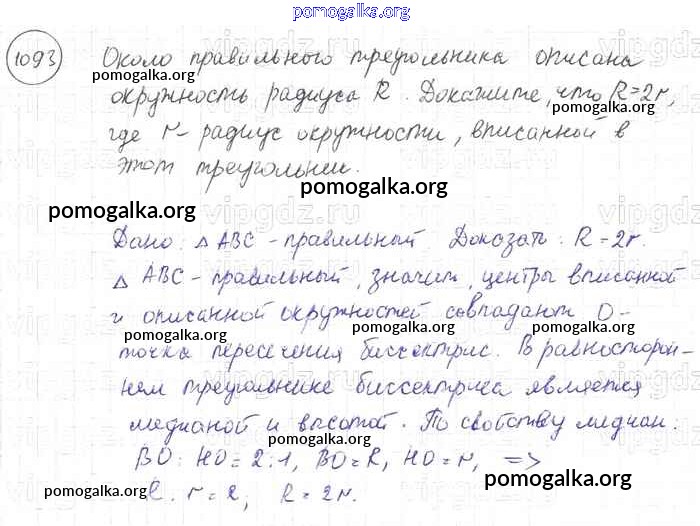 pomogalka.org
1093 Около правильного треугольника описана
pomogalka.org
окружность радиуса R. Докажите, что R=2r,
pomogalka.org
где r – радиус окружности, вписанной в
pomogalka.org
этот треугольник.
pomogalka.org
pomogalka.org
Дано: △ ABC – правильный. Доказать: R = 2r.
△ ABC – правильный, значит, центры вписанной
pomogalka.org
и описанной окружностей совпадают O –
pomogalka.org pomogalka.org
точка пересечения биссектрис. В равносторон-
pomogalka.org
нем треугольнике биссектриса является
медианой и высотой. По свойству медиан.
pomogalka.org
BO : HO = 2:1, BO=R, HO=r, =>
R : r = 2, R = 2r.
pomogalka.org pomogalka.org